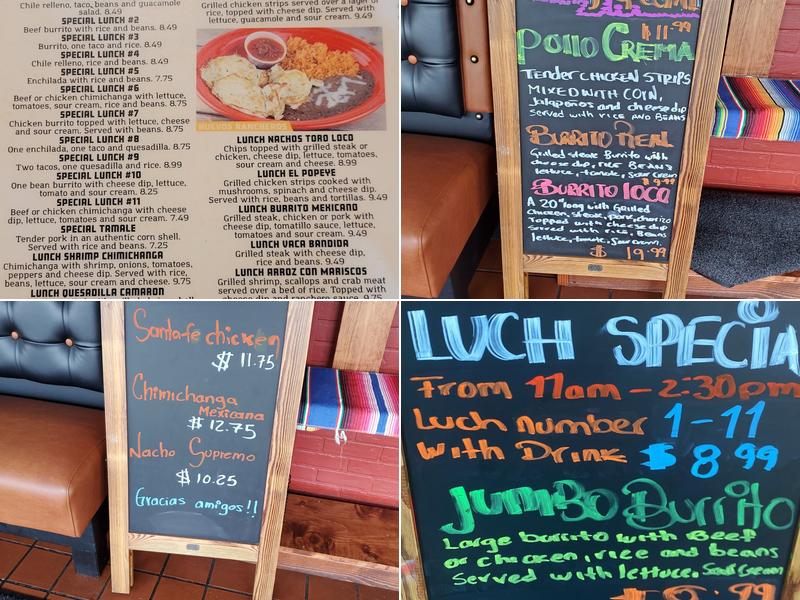 Chile relleno, taco, beans and guacamole
salad. 8.49
SPECIAL LUNCH #2
Beef burrito with rice and beans. 8.49
SPECIAL LUNCH #3
Burrito, one taco and rice. 8.49
SPECIAL LUNCH #4
Chile relleno, rice and beans. 8.49
SPECIAL LUNCH #5
Enchilada with rice and beans. 7.75
SPECIAL LUNCH #6
Beef or chicken chimichanga with lettuce,
tomatoes, sour cream, rice and beans. 8.75
SPECIAL LUNCH #7
Chicken burrito topped with lettuce, cheese
and sour cream. Served with beans. 8.75
SPECIAL LUNCH #8
One enchilada, one taco and quesadilla. 8.75
SPECIAL LUNCH #9
Two tacos, one quesadilla and rice. 8.99
SPECIAL LUNCH #10
One bean burrito with cheese dip, lettuce,
tomato and sour cream. 8.25
SPECIAL LUNCH #11
Beef or chicken chimichanga with cheese
dip, lettuce, tomatoes and sour cream. 7.49
SPECIAL TAMALE
Tender pork in an authentic corn shell.
Served with rice and beans. 7.25
LUNCH SHRIMP CHIMICHANGA
Chimichanga with shrimp, onions, tomatoes,
peppers and cheese dip. Served with rice,
beans, lettuce, sour cream and cheese. 9.75
LUNCH QUESADILLA CAMARON
Grilled chicken strips served over a layer of
rice, topped with cheese dip. Served with
lettuce, guacamole and sour cream. 9.49
HUEVOS RANCHEROS
LUNCH NACHOS TORO LOCO
Chips topped with grilled steak or
chicken, cheese dip, lettuce, tomatoes,
sour cream and cheese. 8.99
LUNCH EL POPEYE
Grilled chicken strips cooked with
mushrooms, spinach and cheese dip.
Served with rice, beans and tortillas. 9.49
LUNCH BURRITO MEXICANO
Grilled steak, chicken or pork with
cheese dip, tomatillo sauce, lettuce,
tomato and sour cream. 9.49
LUNCH VACA BANDIDA
Grilled steak with cheese dip,
rice and beans. 9.49
LUNCH ARROZ CON MARISCOS
Grilled shrimp, scallops and crab meat
served over a bed of rice. Topped with
cheese dip and ranchero sauce. 9.75
$11.99
Pollo CREMA
Tender CHICKEN STRIPS
MIXED WITH COIN,
Jalapeños and cheese dip
Served with rice AND BEANS
BURRITO REAL
Grilled steak Burrito with
cheese dip, rice BEANS,
lettuce, tomate, sour cream
$9.99
BURRITO LOCO
A 20" long with Grilled
Chicken, steak, pork, chorizo
Topped with cheese dip
served with rice, Beans
lettuce, tomate, Sour cream.
$ 19.99
Santa-fe chicken
$ 11.75
Chimichanga
Mexicana
$ 12.75
Nacho Supremo
$ 10.25
Gracias amigos!!
LUCH SPECIA
From 11am - 2:30pm
Luch number 1-11
With Drink $ 8.99
Jumbo Burrito
Large burrito with Beef
or chicken, rice and beans
Served with lettuce, Sour Cream